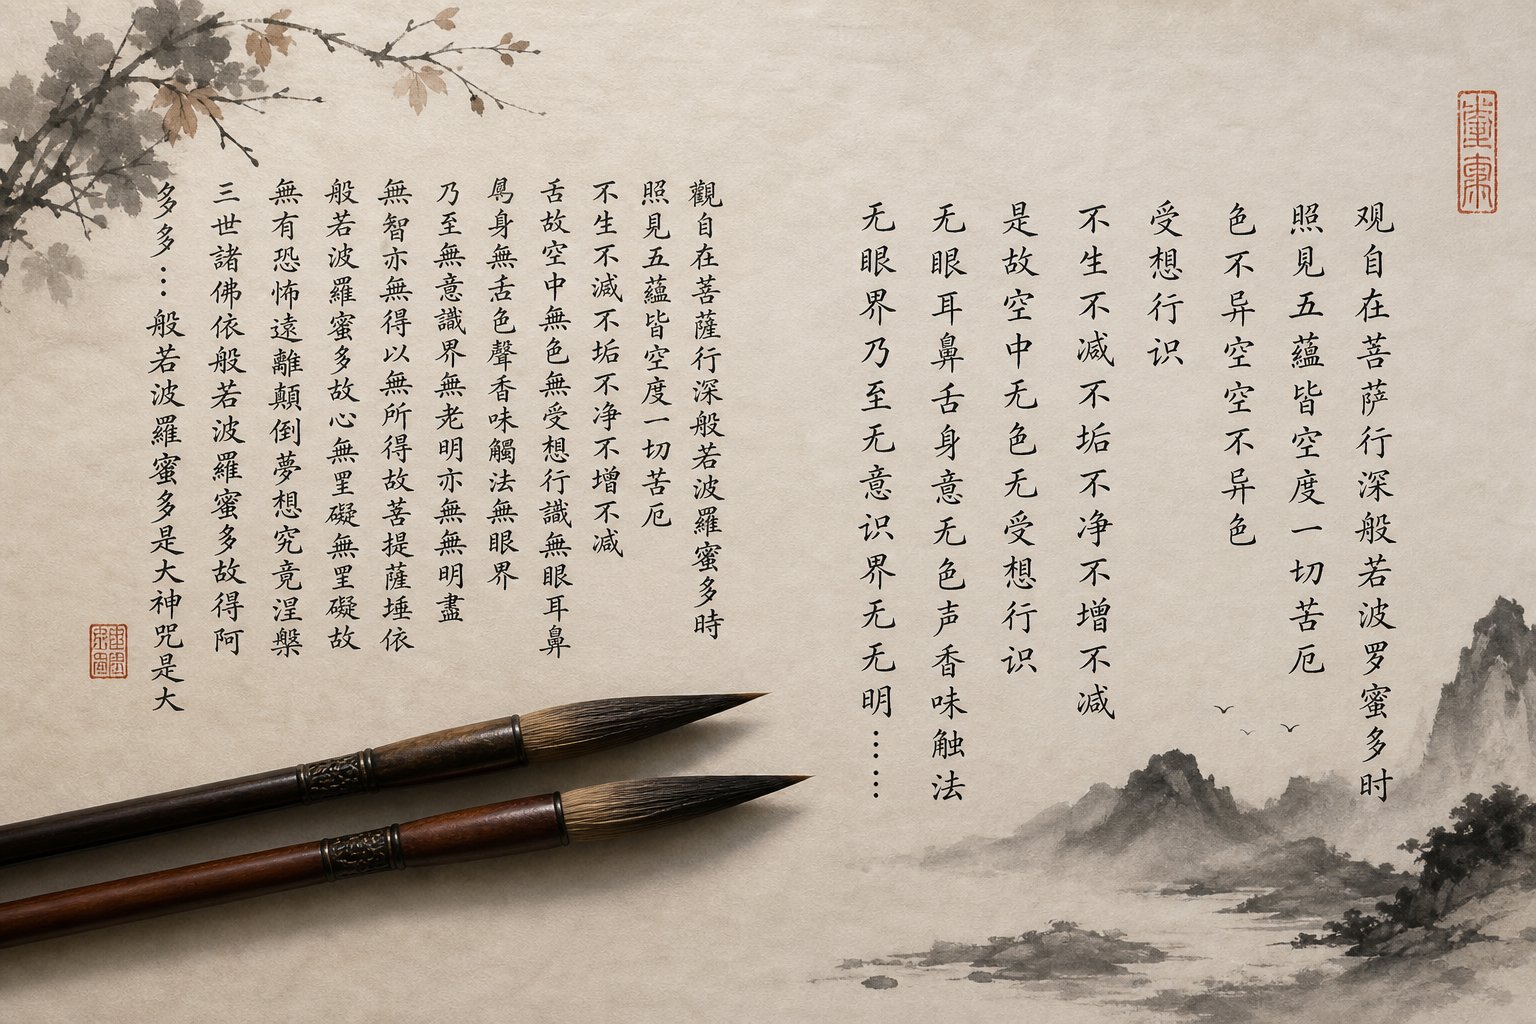 观自在菩萨行深般若波罗蜜多时
照見五蘊皆空度一切苦厄
色不异空空不异色
受想行识
不生不减不垢不净不增不减
是故空中无色无受想行识
无眼耳鼻舌身意无色声香味触法
无眼界乃至无意识界无无明……
觀自在菩薩行深般若波羅蜜多時
照見五蘊皆空度一切苦厄
不生不減不垢不净不增不减
舌故空中無色無受想行識無眼耳鼻
身無舌色聲香味觸法無眼界
乃至無意識界無老明亦無無明盡
無智亦無得以無所得故菩提薩埵依
般若波羅蜜多故心無罣礙無罣礙故
無有恐怖遠離顛倒夢想究竟涅槃
三世諸佛依般若波羅蜜多故得阿
多多…般若波羅蜜多是大神咒是大